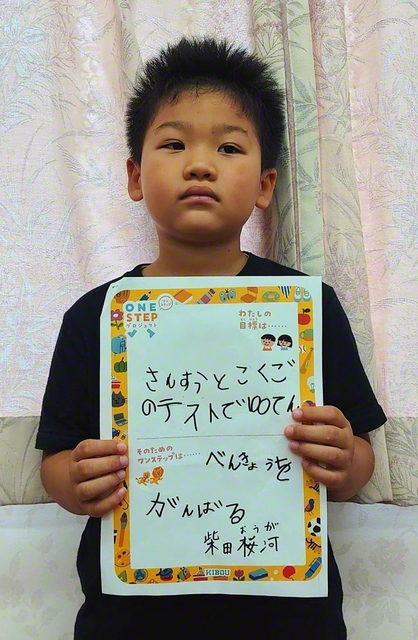 ONE
STEP
プロジェクト
わたしの
目標は……
さんすうとこくご
のテストで100てん
そのための
ワンステップは……
べんきょうを
がんばる
おうが
柴田桜河
KIBOU